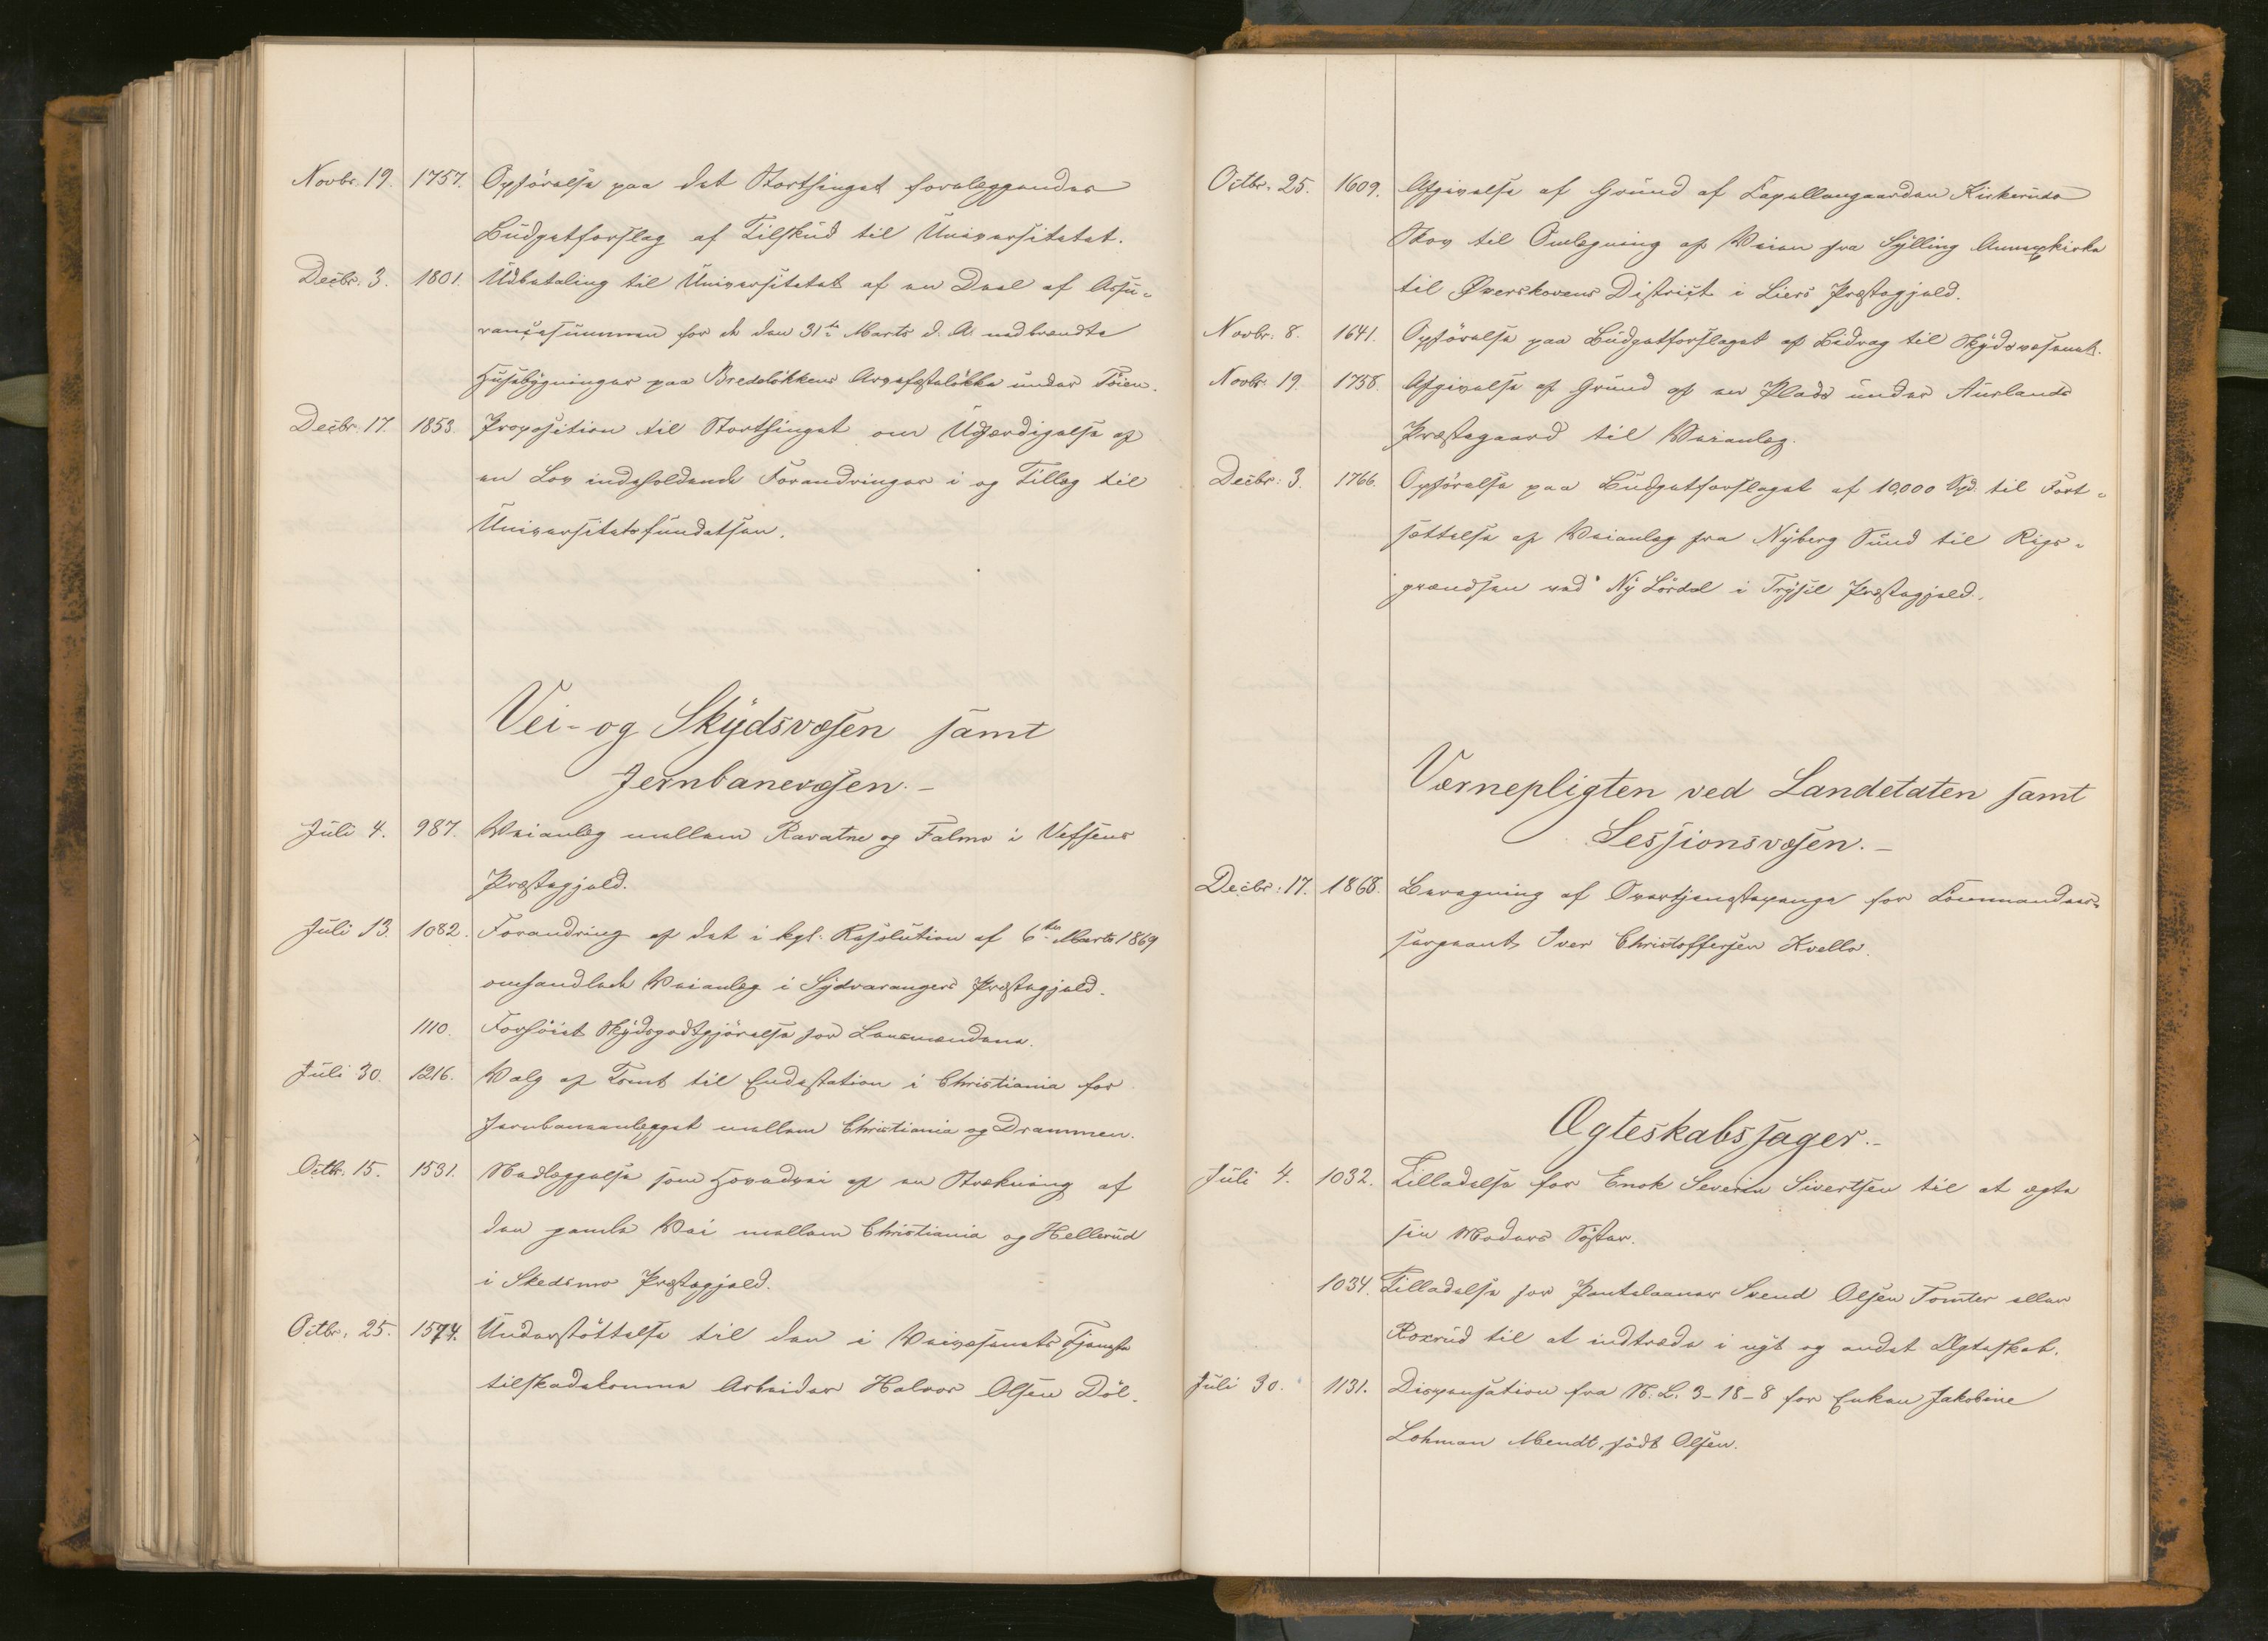 Novbr. 19. 1757. Opförelse paa det Storthinget forelæggendes
Budgetforslag af Tilskud til Universitetet.
Decbr. 3. 1801. Udbetaling til Universitetet af en Deel af Assu-
rancesummen for de den 31te Marts d. A. nedbrændte
Husebygninger paa Bredeløkkens Arvefæsteløkke under Töien.
Decbr. 17. 1853. Proposition til Storthinget om Udfærdigelse af
en Lov indeholdende Forandringer i og Tillæg til
Universitetsfundatsen.
Vei- og Skydsvæsen samt
Jernbanevæsen.-
Juli 4. 987. Veianlæg mellem Ravatne og Falmo i Vefsens
Præstegjeld.
Juli 13. 1082. Forandring af det i kgl. Resolution af 6te Marts 1869
omhandlede Veianlæg i Sydvarangers Præstegjeld.
1110. Forhöiet Skydsgodtgjörelse for Lensmændene.
Juli 30. 1216. Valg af Tomt til Endestation i Christiania for
Jernbaneanlægget mellem Christiania og Drammen.
Octbr. 15. 1531. Nedlæggelse som Hovedvei af en Strækning af
den gamle Vei mellem Christiania og Hellerud
i Skedsmo Præstegjeld.
Octbr. 25. 1574. Understöttelse til den i Veivæsenets Tjeneste
tilskadekomne Arbeider Halvor Olsen Döl.
Octbr. 25. 1609. Afgivelse af Grund af Capellangaarden Kiskeruds
Skov til Omlægning af Veien fra Sylling Annexkirke
til Øverskovens District i Liers Præstegjeld.
Novbr. 8. 1641. Opförelse paa Budgetforslaget af Bidrag til Skydsvæsenet.
Novbr. 19. 1758. Afgivelse af Grund af en Plads under Aurlands
Præstegaard til Veianlæg.
Decbr. 3. 1766. Opförelse paa Budgetforslaget af 10,000 Spd. til Fort-
sættelse af Veianlæg fra Nyberg Sund til Rigs-
grændsen ved Ny Lördal i Trysil Præstegjeld.
Værnepligten ved Landetaten samt
Sessionsvæsen.-
Decbr. 17. 1868. Beregning af Overtjenestepenge for Commandeer-
sergeant Iver Christoffersen Kvello.
Ægteskabssager.-
Juli 4. 1032. Tilladelse for Enok Severin Sivertsen til at ægte
sin Moders Söster.
1034. Tilladelse for Pantelaaner Svend Olsen Tomter eller
Roxrud til at indtræde i nyt og andet Ægteskab.
Juli 30. 1131. Dispensation fra N. L. 3-18-8 for Enken Jakobine
Lohman Mendt, født Olsen.